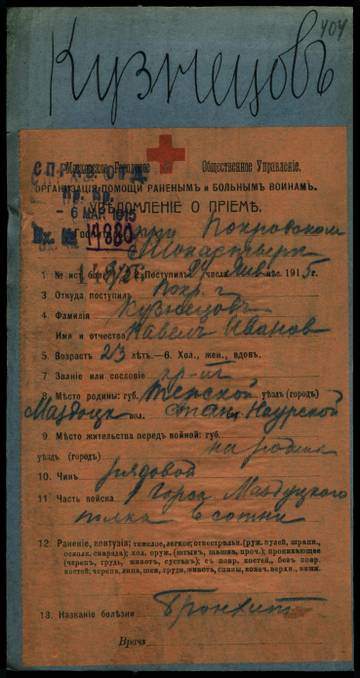 404
Кузнецовъ
СПРАВ. ОТД.
Московское Городское Общественное Управленіе.
ОРГАНИЗАЦІЯ ПОМОЩИ РАНЕНЫМЪ и БОЛЬНЫМЪ ВОИНАМЪ.
- 6 МАР 1915
УВѢДОМЛЕНІЕ О ПРІЕМѢ.
Вх. № 19880
Госпит. при Покровскомъ
Монастырѣ
1 № ист. бол. 2 Поступилъ 24 час. мѣс. 1915 г.
3 Откуда поступилъ
4 Фамилія Кузнецовъ
Имя и отчество Павелъ Ивановъ
5 Возрастъ 23 лѣтъ.—6. Хол., жен., вдовъ.
7 Званіе или сословіе
8 Мѣсто родины: губ. Терской уѣздъ (городъ)
вол. Наурской
9 Мѣсто жительства передъ войной: губ.
уѣздъ (городъ) на родинѣ
10. Чинъ рядовой
11 Часть войска 1 Горско Моздокскаго
полка 6 сотни
12 Раненіе, контузія: тяжелое, легкое; огнестрѣльн. (руж. пулей, шрапн.,
осколк. снаряда); хол. оруж. (штык., шашка, проч.); проникающее
(черепъ, грудь, животъ, суставъ); съ повр. костей, безъ повр.
костей; черепа, лица, шеи, груди, живота, спины, конеч. верхн., нижн.
13. Названіе болѣзни Бронхитъ
Врачъ